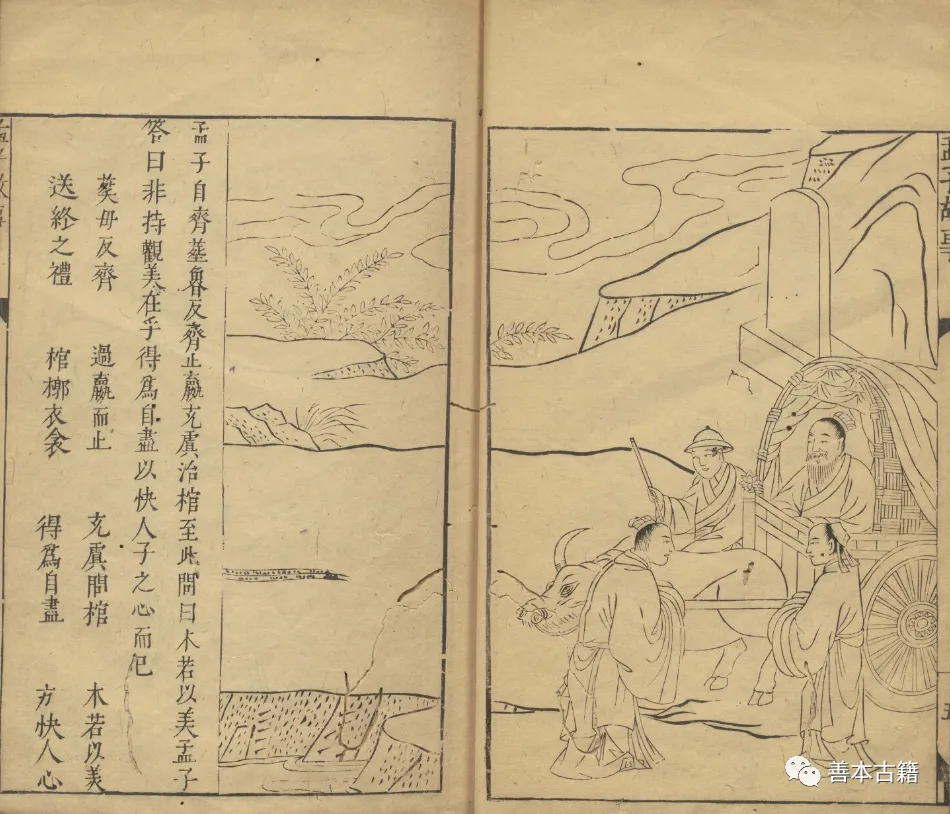 孟子故事
孟子自齊塟魯反齊止嬴充虞治棺至此問曰木若以美孟子
答曰非持觀美在乎得爲自盡以快人子之心而已
葬母反齊 過嬴而止 充虞問棺 木若以美
送終之禮 棺槨衣衾 得爲自盡 方快人心
善本古籍